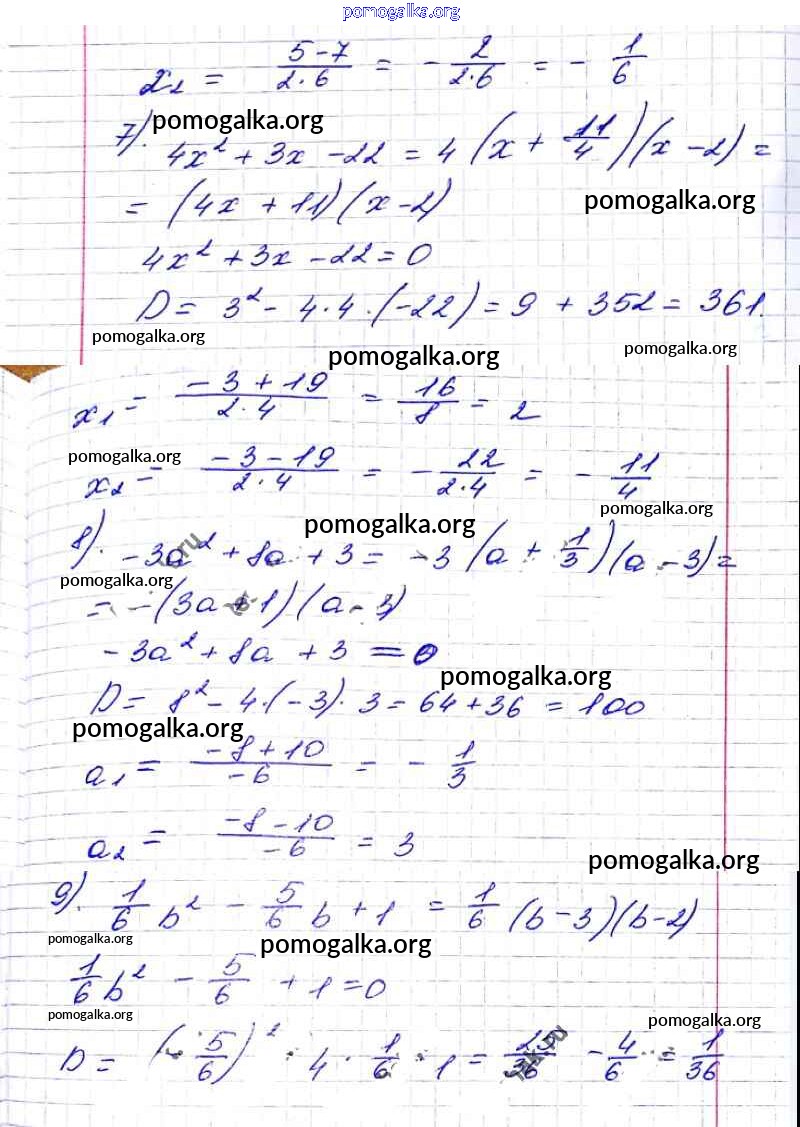 pomogalka.org
x₂ = (5-7)/(2·6) = - 2/(2·6) = - 1/6
7). pomogalka.org
4x² + 3x - 22 = 4 (x + 11/4)(x - 2) =
= (4x + 11)(x - 2) pomogalka.org
4x² + 3x - 22 = 0
D = 3² - 4·4·(-22) = 9 + 352 = 361.
pomogalka.org pomogalka.org pomogalka.org
x₁ = (-3 + 19)/(2·4) = 16/8 = 2
pomogalka.org
x₂ = (-3 - 19)/(2·4) = - 22/(2·4) = - 11/4
pomogalka.org pomogalka.org
8). -3a² + 8a + 3 = -3 (a + 1/3)(a - 3) =
pomogalka.org
= -(3a + 1)(a - 3)
-3a² + 8a + 3 = 0
pomogalka.org
D = 8² - 4·(-3)·3 = 64 + 36 = 100
pomogalka.org
a₁ = (-8 + 10)/(-6) = - 1/3
a₂ = (-8 - 10)/(-6) = 3
pomogalka.org
9). 1/6 b² - 5/6 b + 1 = 1/6 (b - 3)(b - 2)
pomogalka.org pomogalka.org
1/6 b² - 5/6 + 1 = 0
pomogalka.org pomogalka.org
D = (- 5/6)² - 4 · 1/6 · 1 = 25/36 - 4/6 = 1/36